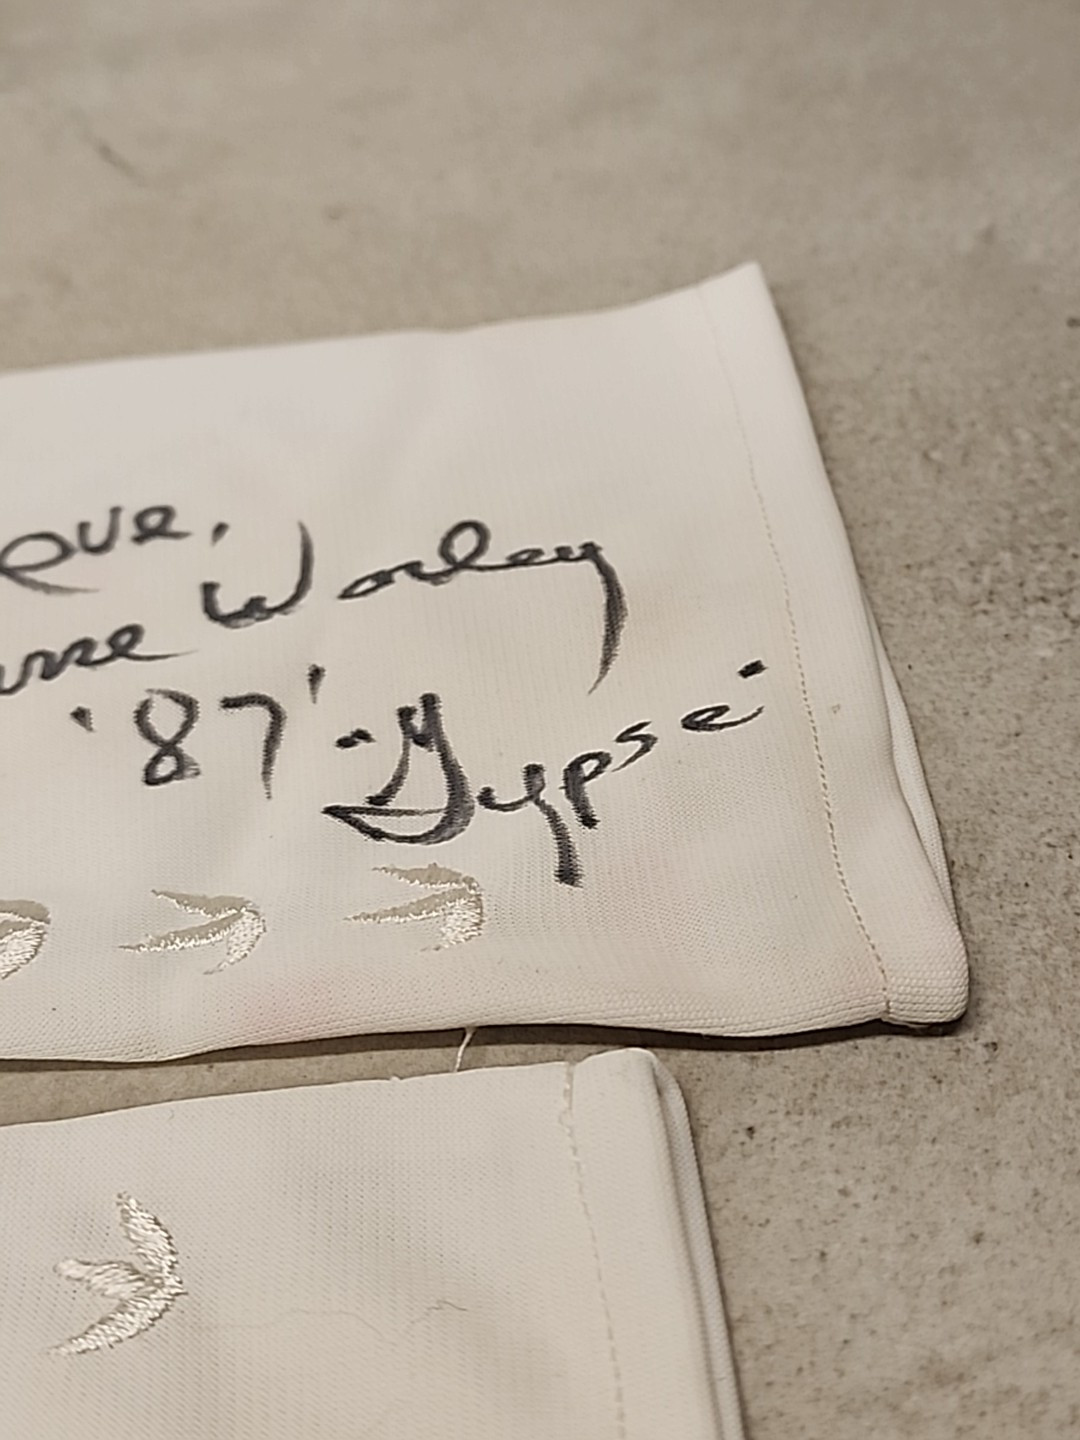 ove,
nne Worley
'87' "Gypsé"